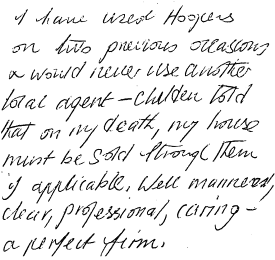 I have used Hoopers
on two previous occasions
& would never use another
local agent – children told
that on my death, my house
must be sold through them
if applicable. Well mannered,
clear, professional, caring –
a perfect firm.